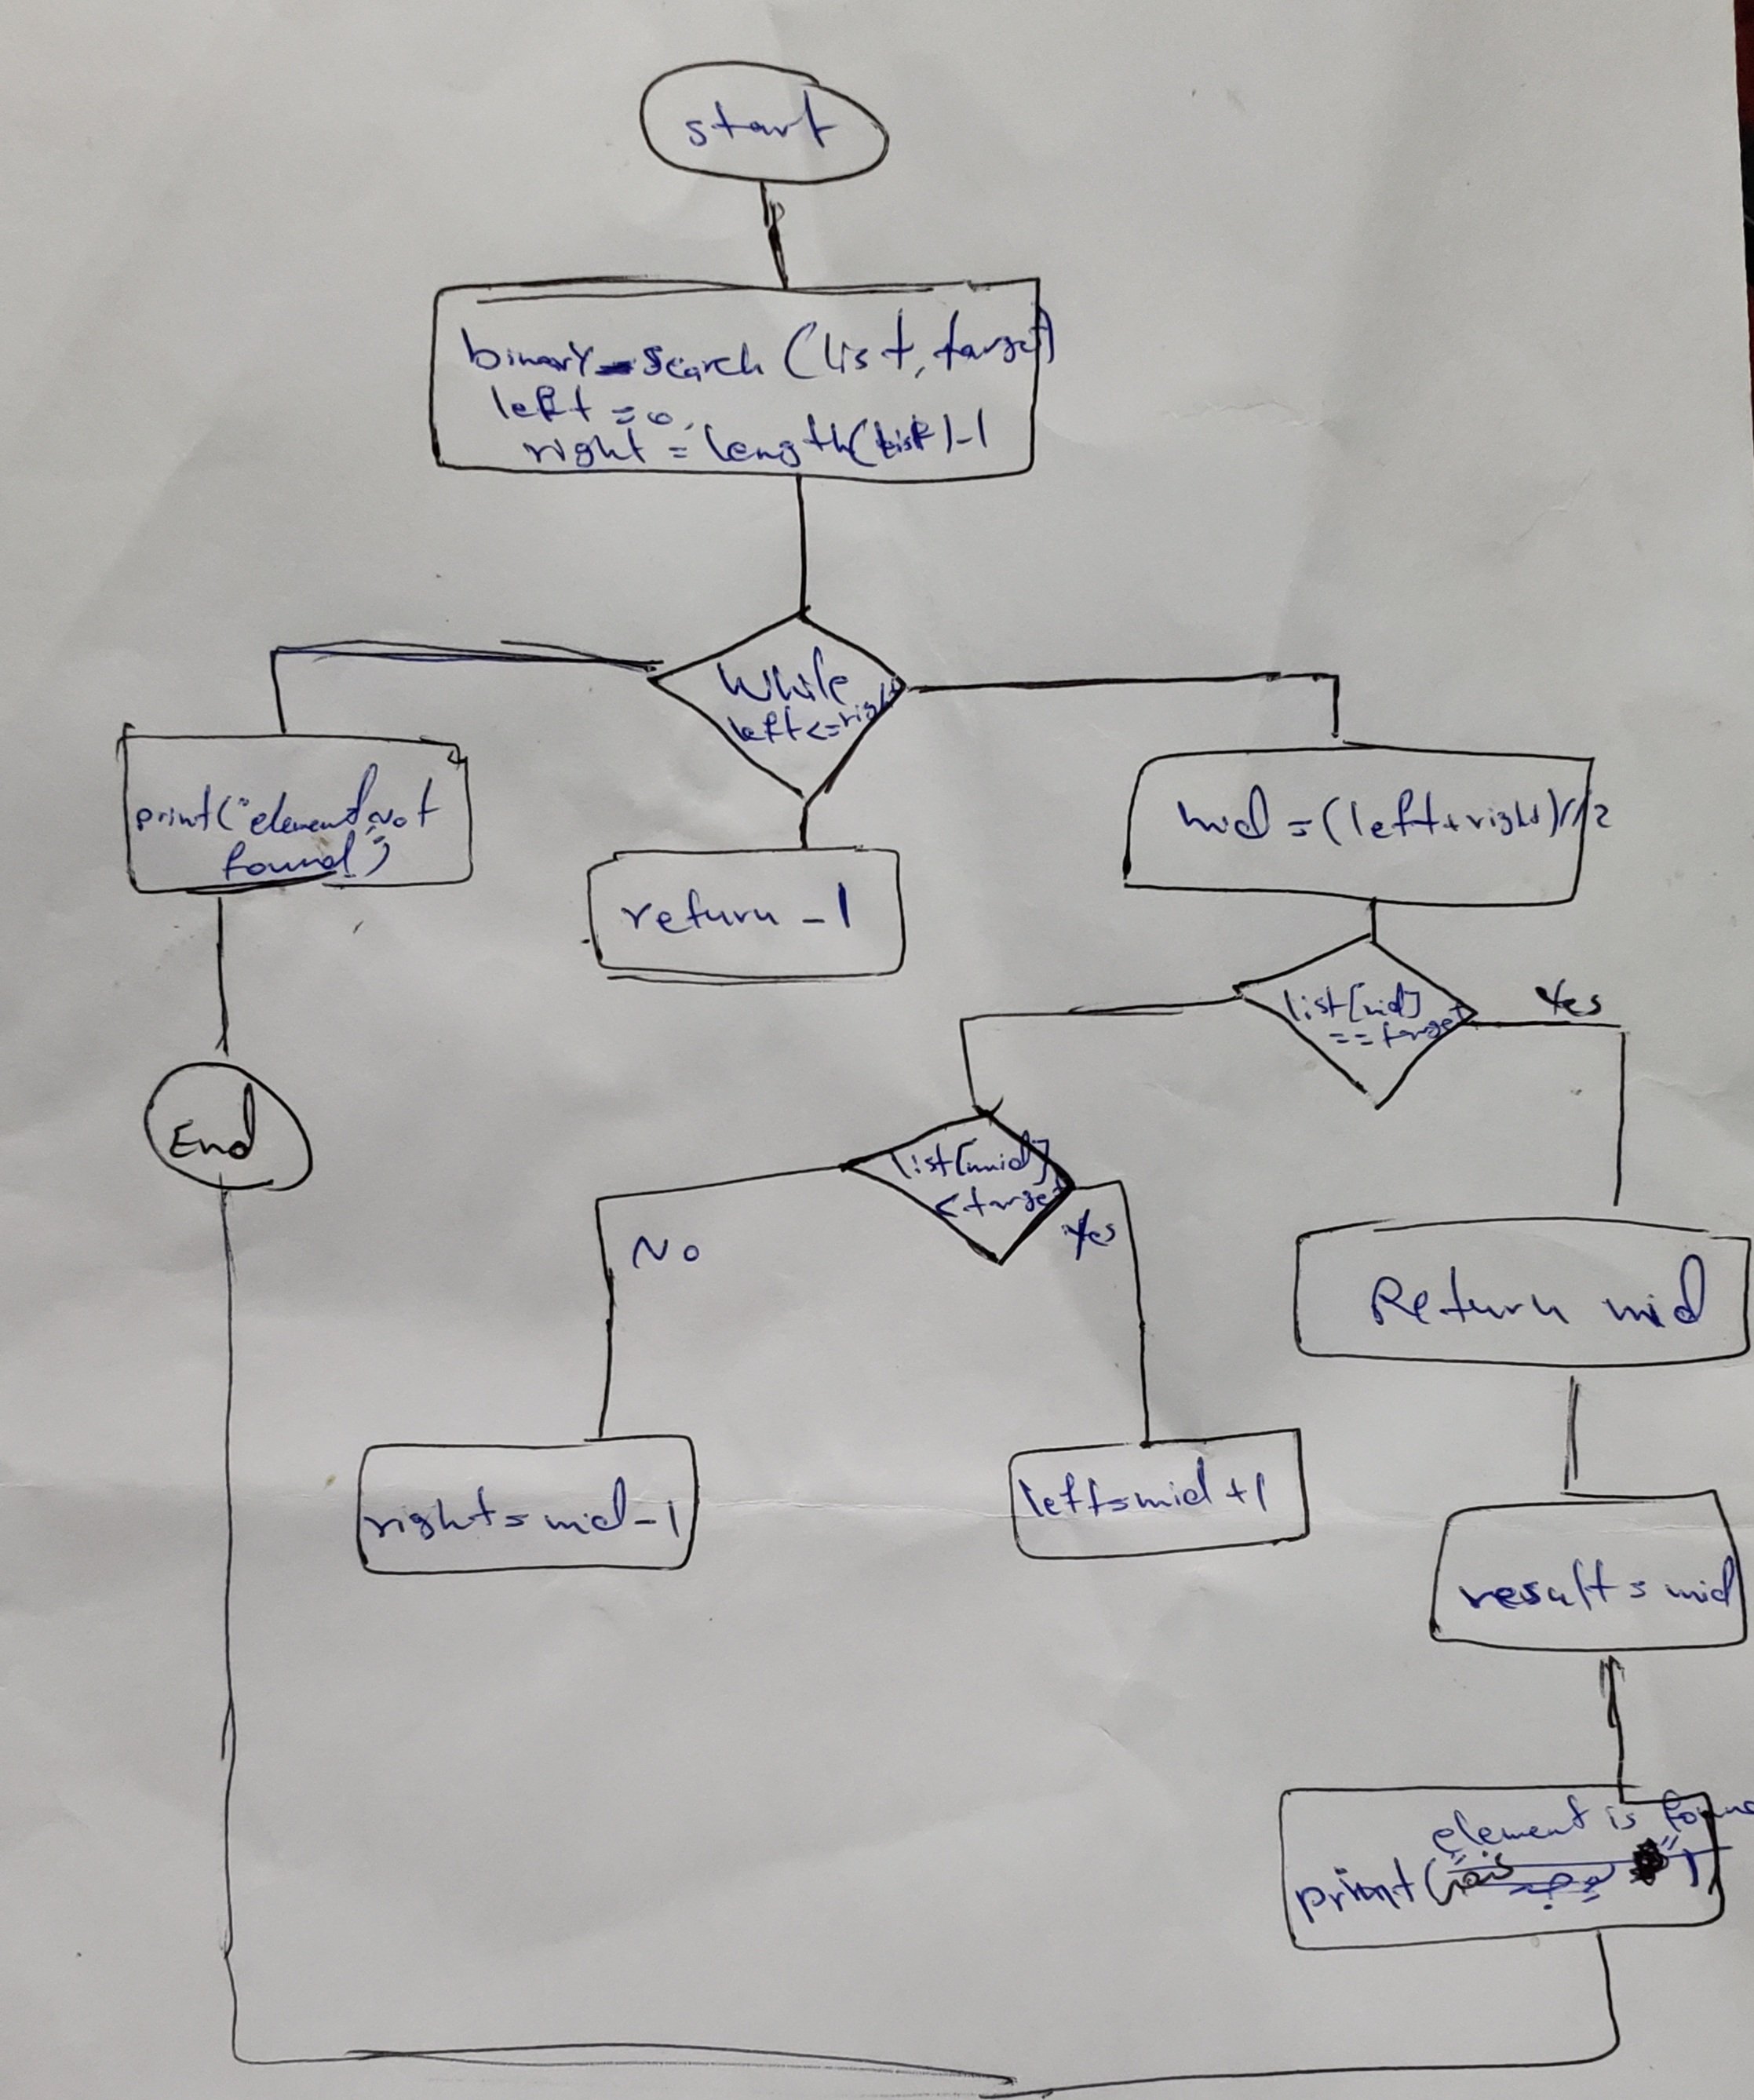 start
binary-search (list, target)
left = 0,
right = length(list)-1
While
left <= right
print("element not
found")
return -1
mid = (left+right)//2
list[mid]
== target
Yes
End
list[mid]
< target
No
Yes
Return mid
right = mid-1
left = mid +1
result = mid
element is found
print(" ")